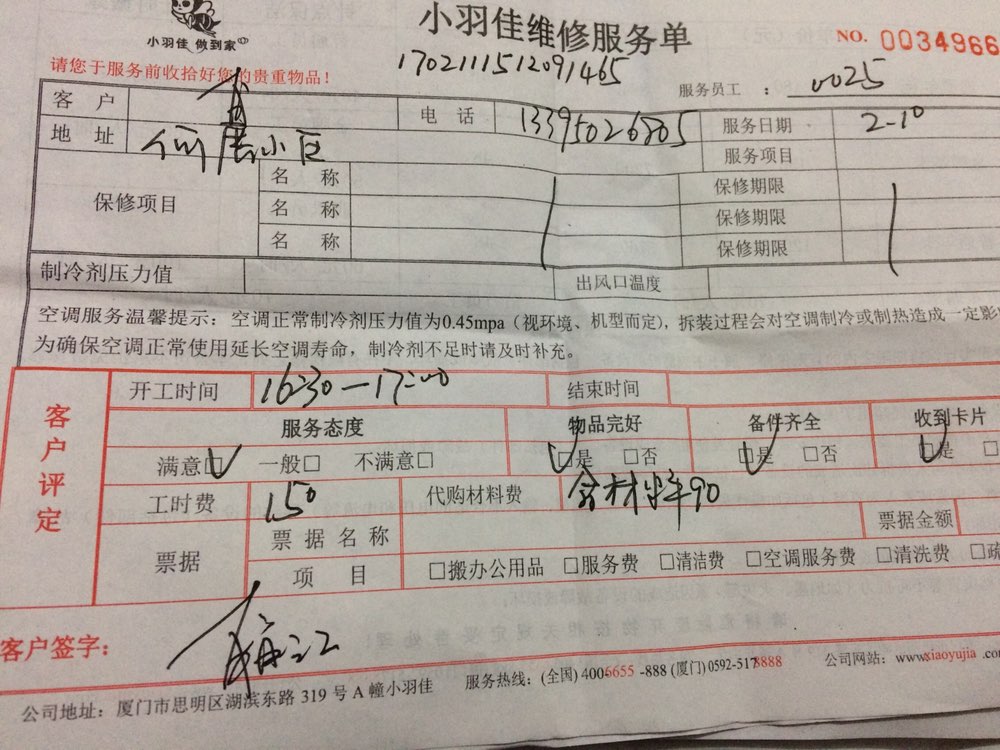 小羽佳 做到家
小羽佳维修服务单
NO. 0034966
请您于服务前收拾好您的贵重物品！
1702111512091465
服务员工 ： 0025
客 户 电 话 13395026805 服务日期 2-10
地 址 小区 服务项目
保修项目 名 称 保修期限
名 称 保修期限
名 称 保修期限
制冷剂压力值 出风口温度
空调服务温馨提示：空调正常制冷剂压力值为0.45mpa（视环境、机型而定），拆装过程会对空调制冷或制热造成一定影
为确保空调正常使用延长空调寿命，制冷剂不足时请及时补充。
客户评定
开工时间 16:30—17:00 结束时间
服务态度 物品完好 备件齐全 收到卡片
满意□ 一般□ 不满意□ □是 □否 □是 □否 □是 □
工时费 150 代购材料费 90
票据 票据名称 票据金额
项 目 □搬办公用品 □服务费 □清洁费 □空调服务费 □清洗费 □疏
客户签字：
公司地址：厦门市思明区湖滨东路 319 号 A 幢小羽佳 服务热线：(全国) 4006655 -888 (厦门) 0592-5178888 公司网站：www.xiaoyujia .con